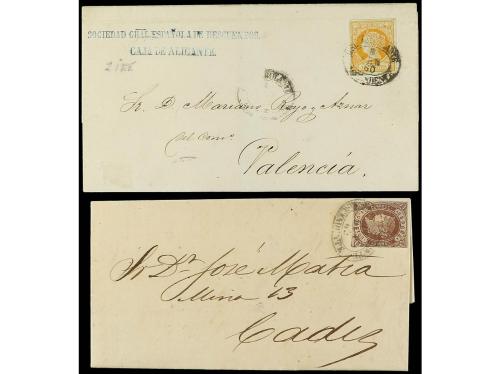 SOCIEDAD GRAL ESPAÑOLA DE DESCUENTOS.
CAJA DE ALICANTE.
Sr. D. Mariano Royo y Aznar
del Comº
Valencia.
Sr Dn José Matia
Mina 13
Cadiz